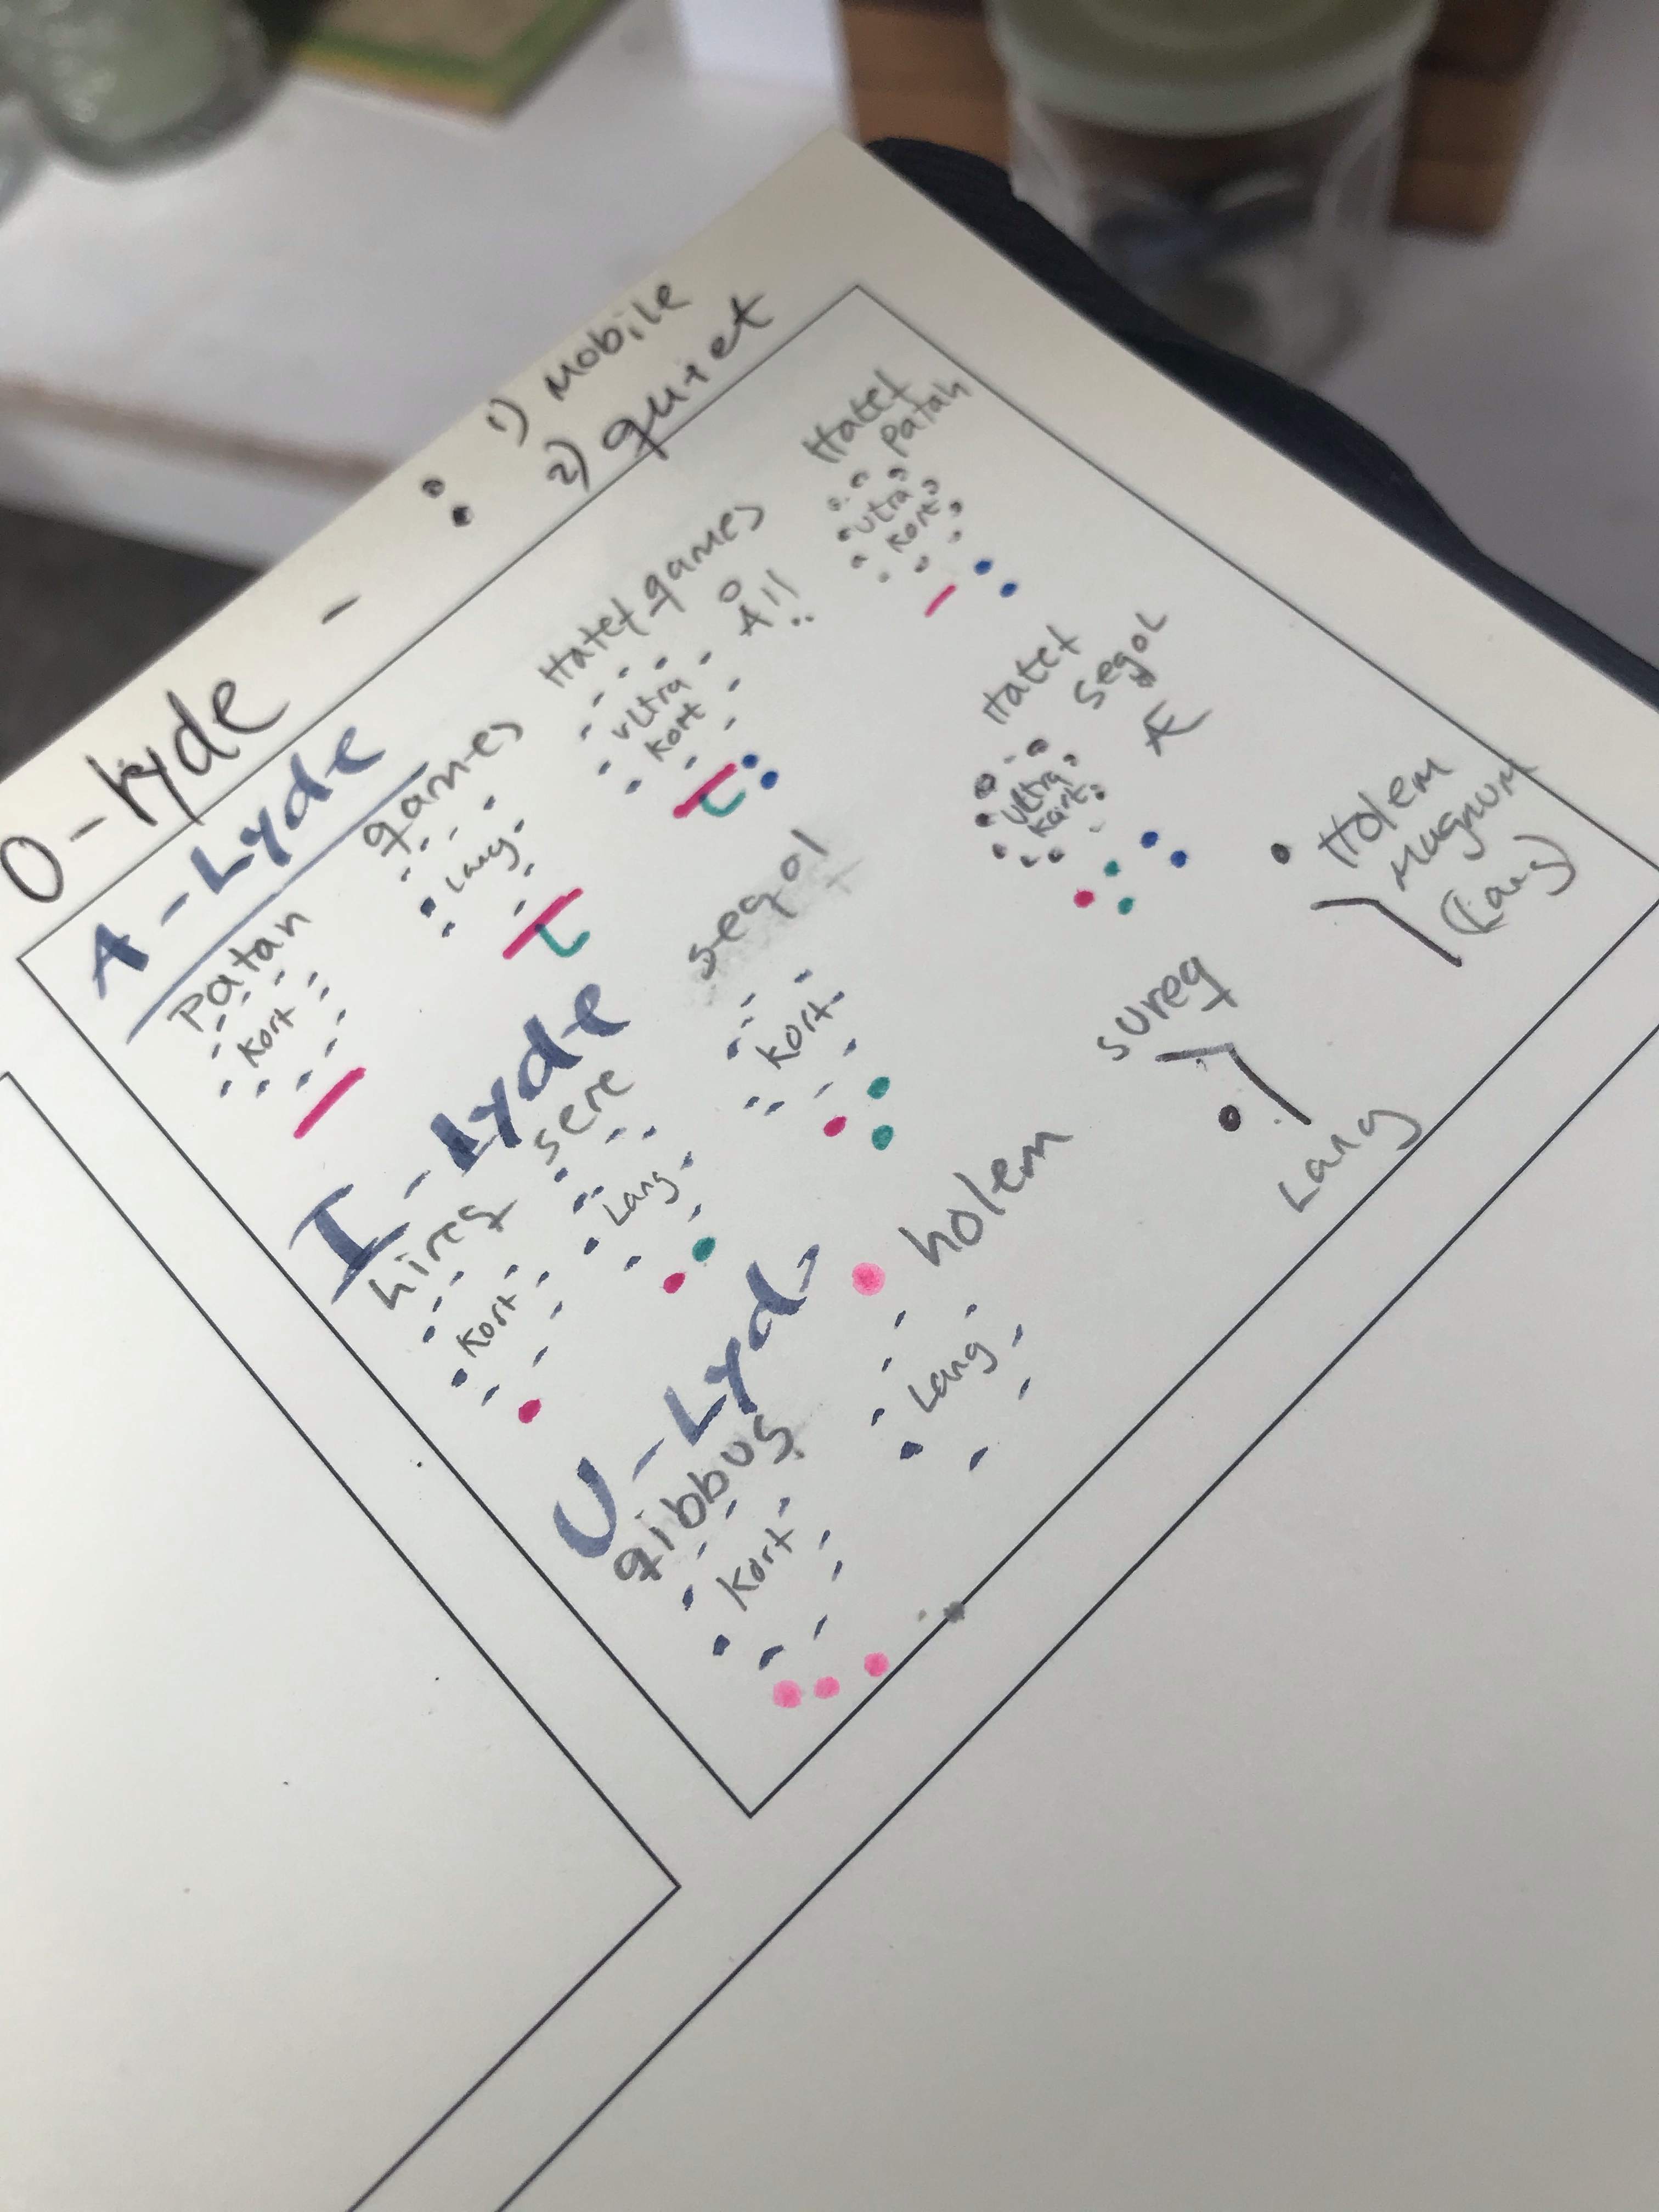 O-lyde - : 1) Mobile
2) quiet
A-Lyde
Patah
Kort
qames
Lang
Hatef qames
ultra
kort
Hatef
Patah
ultra
kort
I-Lyde
hireq
Kort
sere
Lang
segol
Kort
Hatef
segol
Æ
ultra
kort
U-Lyd
qibbus
Kort
holem
Lang
sureq
Lang
Holem
Magnum
(Lang)